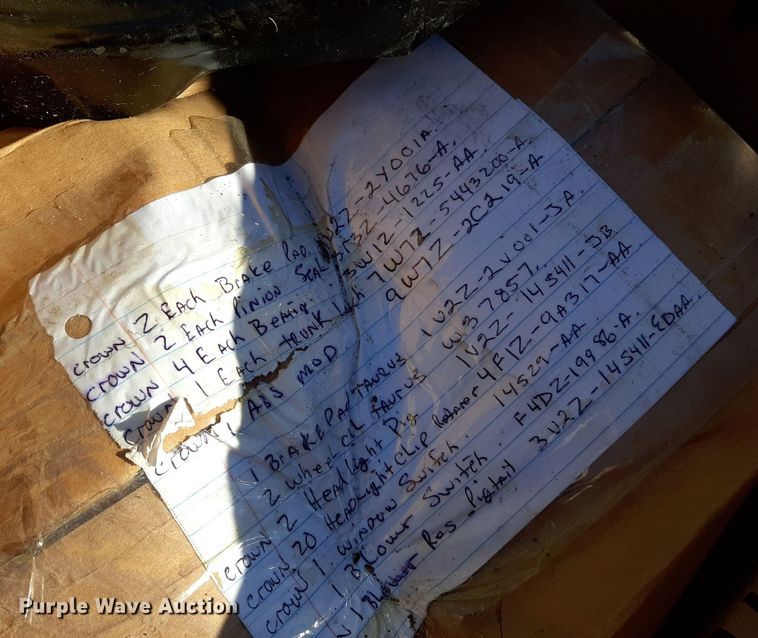 Crown 2 Each Brake Pad 2V2Z-2V001A
Crown 2 Each Pinion Seal 4676-A
Crown 4 Each Bearing 3W1Z 1225-AA
Crown 1 Each Trunk 7W7Z 5443200-A
Crown 1 ABS Mod 9W7Z-2C219-A
1 Brake Pad Taurus 1V2Z-2V001-JA
2 Wheel Taurus W37857
Crown 2 Headlight Pig 1V2Z-14S411-JB
Crown 20 Headlight Clip Retainer 4F1Z-9A317-AA
Crown 1 Window Switch 14529-AA
1 Switch F4DZ-19986-A
1 Blower Res Pigtail 3U2Z-14S411-EDAA
Purple Wave Auction